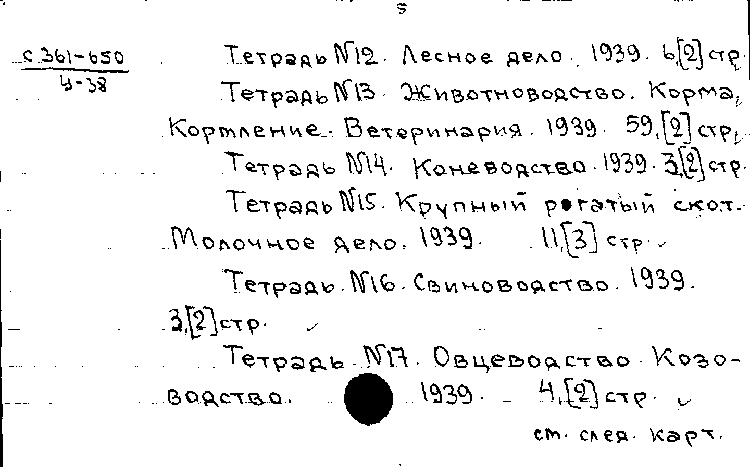 5
с 361-650
4-38
Тетрадь №12. Лесное дело. 1939. 6,[2] стр.
Тетрадь №13. Животноводство. Корма,
Кормление. Ветеринария. 1939. 59,[2] стр,
Тетрадь №14. Коневодство. 1939. 3,[2] стр.
Тетрадь №15. Крупный рогатый скот.
Молочное дело. 1939. 11,[3] стр.
Тетрадь №16. Свиноводство. 1939.
3,[2] стр.
Тетрадь №17. Овцеводство. Козо-
водство. 1939. 4,[2] стр.
см. след. карт.